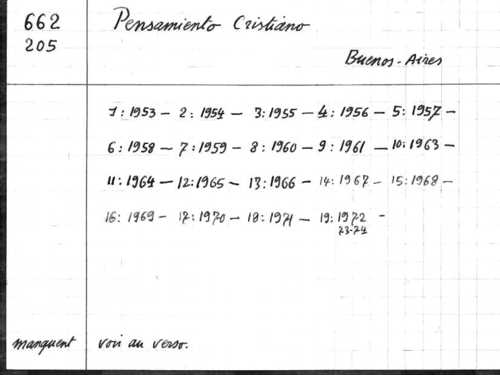 662 Pensamiento Cristiano
205
Buenos-Aires
1: 1953 - 2: 1954 - 3: 1955 - 4: 1956 - 5: 1957 -
6: 1958 - 7: 1959 - 8: 1960 - 9: 1961 - 10: 1963 -
11: 1964 - 12: 1965 - 13: 1966 - 14: 1967 - 15: 1968 -
16: 1969 - 17: 1970 - 18: 1971 - 19: 1972 -
73-74
manquent voir au verso.